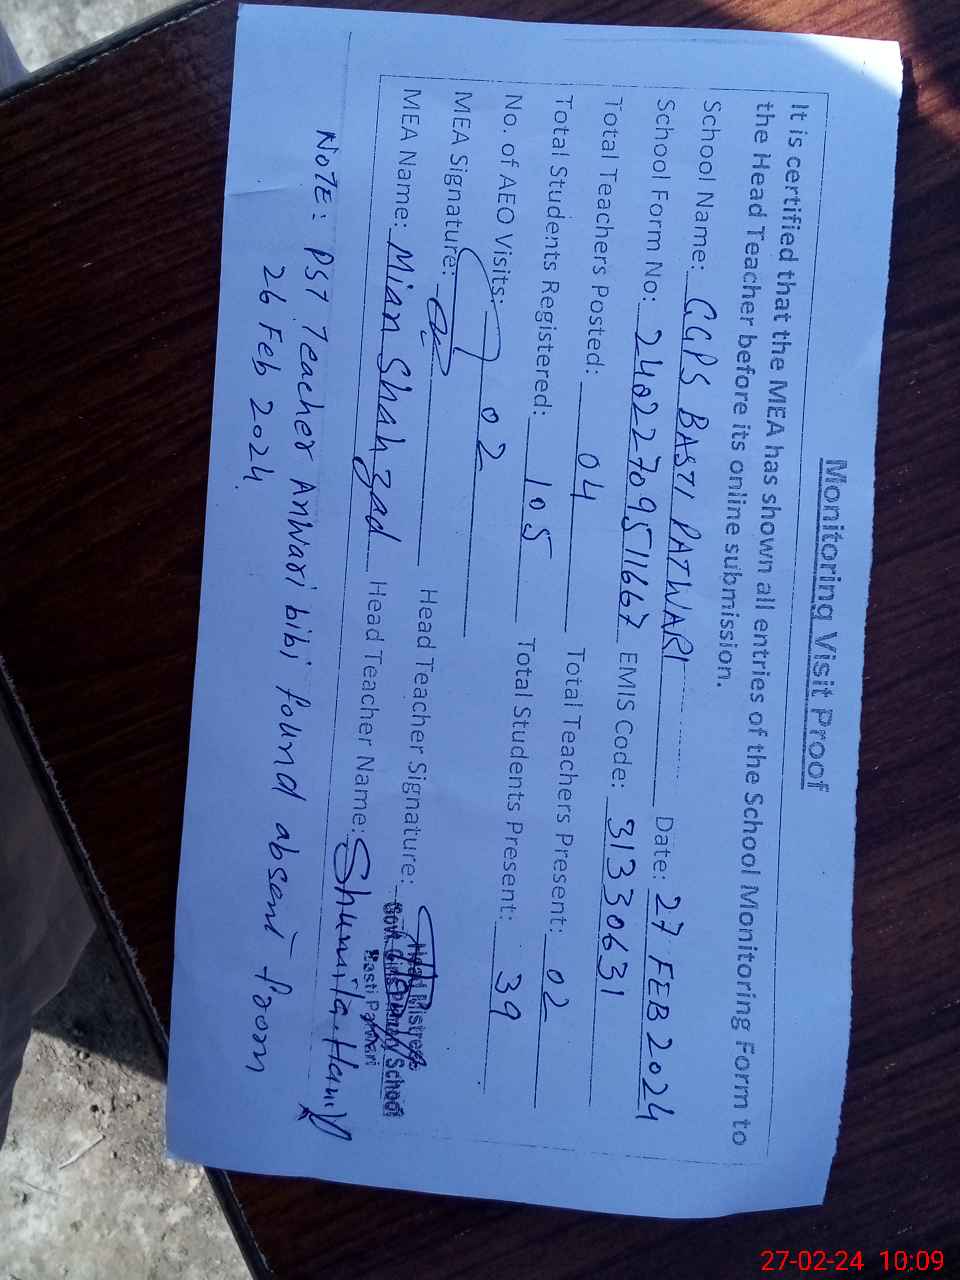 Monitoring Visit Proof
It is certified that the MEA has shown all entries of the School Monitoring Form to
the Head Teacher before its online submission.
School Name: GGPS BASTI PATWARI Date: 27 FEB 2024
School Form No: 24022709511667 EMIS Code: 31330631
Total Teachers Posted: 04 Total Teachers Present: 02
Total Students Registered: 105 Total Students Present: 39
No. of AEO Visits: 02
MEA Signature: Head Teacher Signature:
Head Mistress
Govt. Girls Primary School
Basti Patwari
MEA Name: Mian Shahzad Head Teacher Name: Shumila Hanif
NOTE: PST Teacher Anwari bibi found absent from
26 Feb 2024
27-02-24 10:09